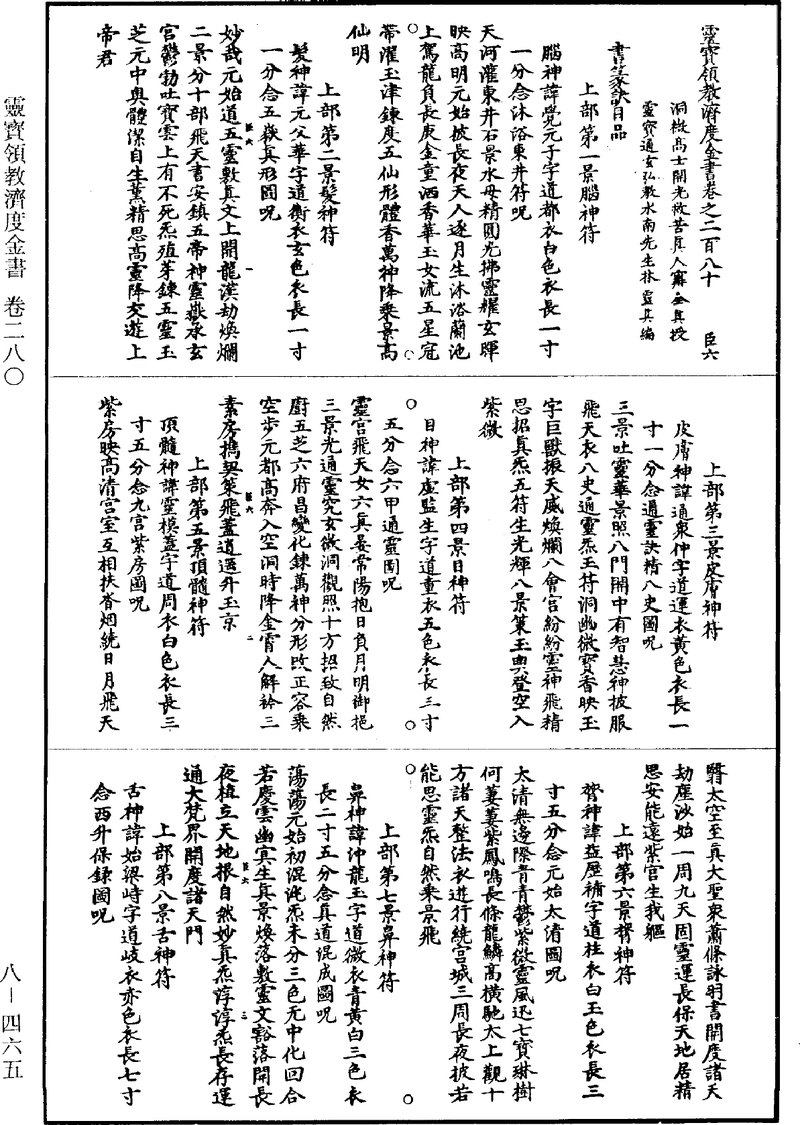 靈寶領教濟度金書卷之二百八十　臣六
洞微高士開光救苦真人甯全真授
靈寶通玄弘教水南先生林靈真編
書篆訣目品
上部第一景腦神符
腦神諱覺元子字道都衣白色衣長一寸
一分念沐浴東井符呪
天河灌東井石景水母精圓光拂靈耀玄暉
映高明元始披長夜天人逐月生沐浴蘭池
上駕龍負長庚金童洒香華玉女流五星冠
帶濯玉津鍊度五仙形體香萬神降乘景高
仙明
上部第二景髮神符
髮神諱元父華字道衡衣玄色衣長一寸
一分念五嶽真形圖呪
妙哉元始道五靈敷真文上開龍漢劫煥爛
二景分十部飛天書安鎮五帝神靈嶽承玄
宮鬱勃吐寶雲上有不死炁殖芽鍊五靈玉
芝元中奧體潔自生薰精思高靈降交遊上
帝君
上部第三景皮膚神符
皮膚神諱通衆仲字道運衣黃色衣長一
寸一分念通靈訣精八史圖呪
三景吐靈華景照八門開中有智慧神披服
飛天衣八史通靈炁玉符洞幽微寶香映玉
字巨獸振天威煥爛八會宮紛紛靈神飛精
思招真炁五符生光輝八景策玉輿登空入
紫微
上部第四景目神符
目神諱虛監生字道童衣五色衣長三寸
五分念六甲通靈圖呪
靈宮飛天女六真晏常陽抱日負月明御挹
三景光通靈究玄微洞觀照十方招致自然
廚五芝六府昌變化鍊萬神分形改正容乘
空步元都高奔入空洞時降金霄人解衿三
素房擕契策飛蓋逍遥升玉京
上部第五景頂髓神符
頂髓神諱靈模蓋字道周衣白色衣長三
寸五分念九宮紫房圖呪
紫房映高清宮室互相扶香烟繞日月飛天
翳太空至真大聖衆蕭條詠明書開度諸天
劫塵沙始一周九天固靈運長保天地居精
思安能遠紫宮生我軀
上部第六景膂神符
膂神諱益歷補字道柱衣白玉色衣長三
寸五分念元始太清圖呪
太清無邊際青青鬱紫微靈風迅七寶琳樹
何萋萋紫鳳鳴長條龍鱗高橫馳太上觀十
方諸天整法衣進行繞宮城三周長夜披若
能思靈炁自然乘景飛
上部第七景鼻神符
鼻神諱沖龍玉字道微衣青黃白三色衣
長二寸五分念真道混成圖呪
蕩蕩元始初混沌炁未分三色无中化回合
若慶雲幽寞生真景煥落敷靈文豁落開長
夜植立天地根自然妙真炁淳淳炁長存運
通大梵界開度諸天門
上部第八景舌神符
舌神諱始梁峙字道岐衣赤色衣長七寸
念西升保錄圖呪
靈寶領教濟度金書　卷二八〇
八－四六五